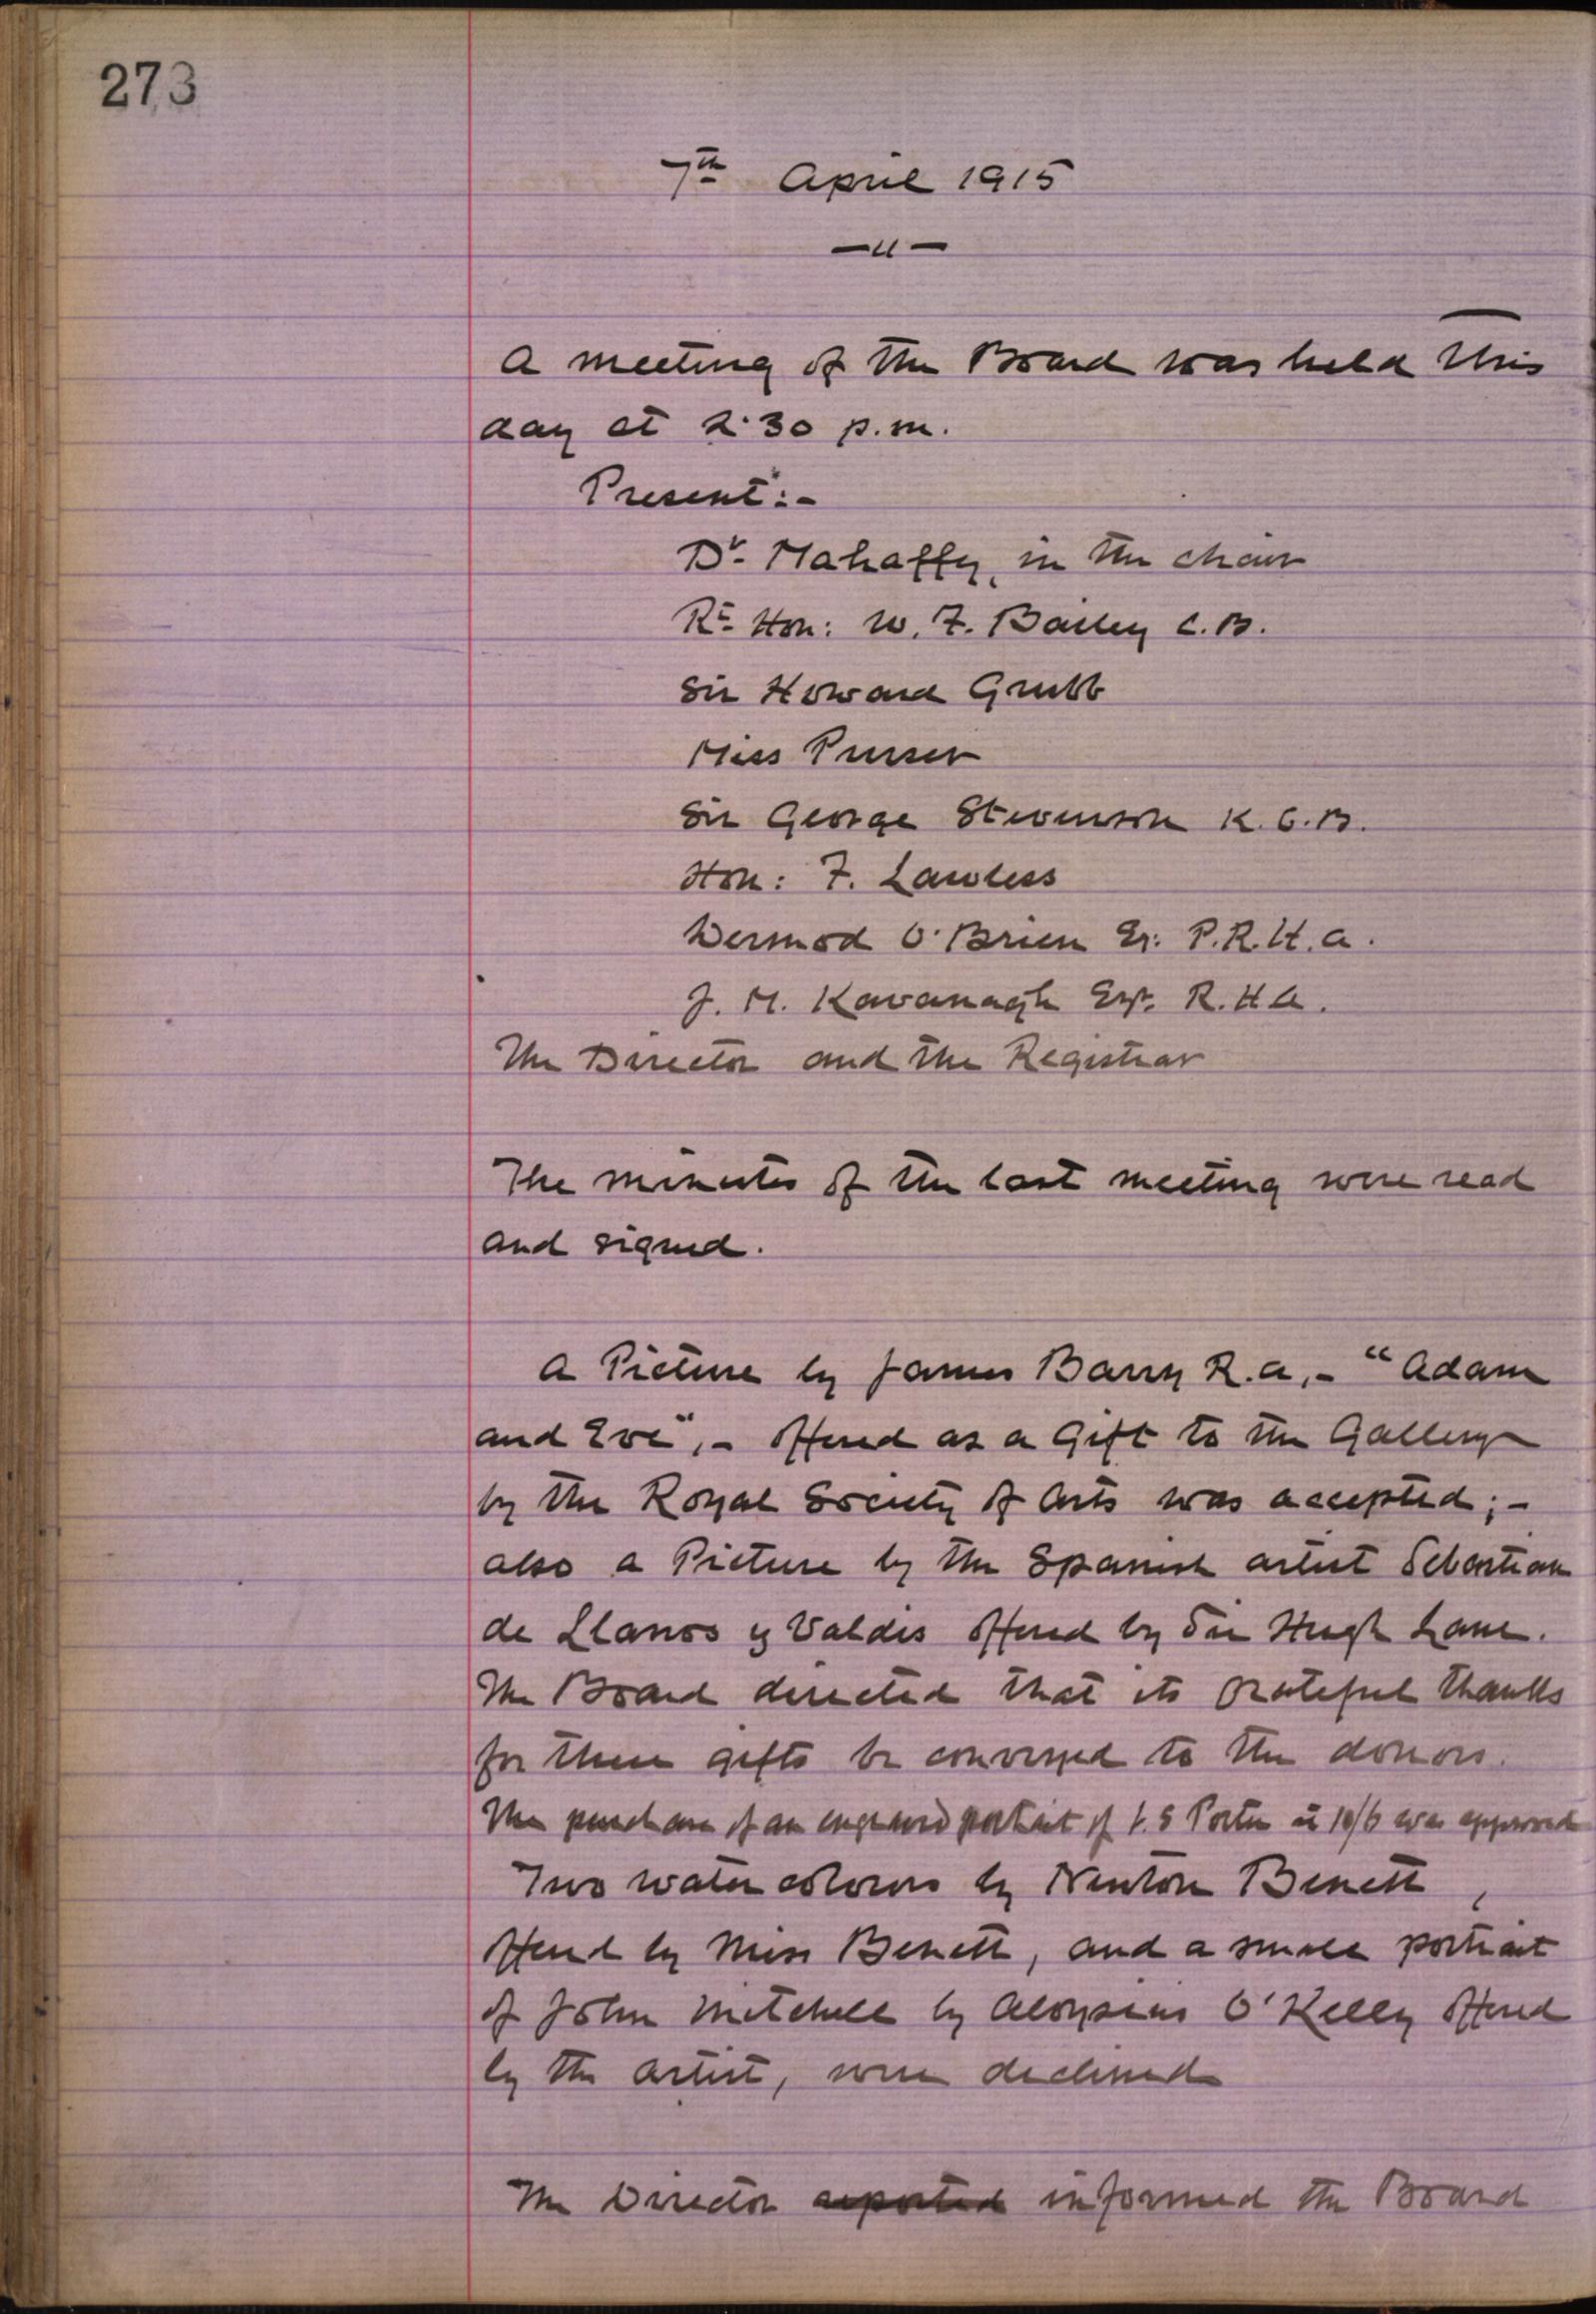 273
7th April 1915
—"—
A meeting of the Board was held this
day at 2.30 p.m.
Present:-
Dr. Mahaffy, in the chair
Rt. Hon: W. F. Bailey C.B.
Sir Howard Grubb
Miss Purser
Sir George Stevenson K.C.B.
Hon: F. Lawless
Dermod O'Brien Esq: P.R.H.A.
J. M. Kavanagh Esq. R.H.A.
The Director and the Registrar
The minutes of the last meeting were read
and signed.
A Picture by James Barry R.A,- "Adam
and Eve",- offered as a Gift to the Gallery
by the Royal Society of Arts was accepted;-
also a Picture by the Spanish artist Sebastian
de Llanos y Valdes offered by Sir Hugh Lane.
The Board directed that its grateful thanks
for these gifts be conveyed to the donors.
The purchase of an engraved portrait of Porter at 10/6 was approved
Two water colours by Newton Benett,
offered by Miss Benett, and a small portrait
of John Mitchell by Aloysius O'Kelly offered
by the artist, were declined
The Director reported informed the Board